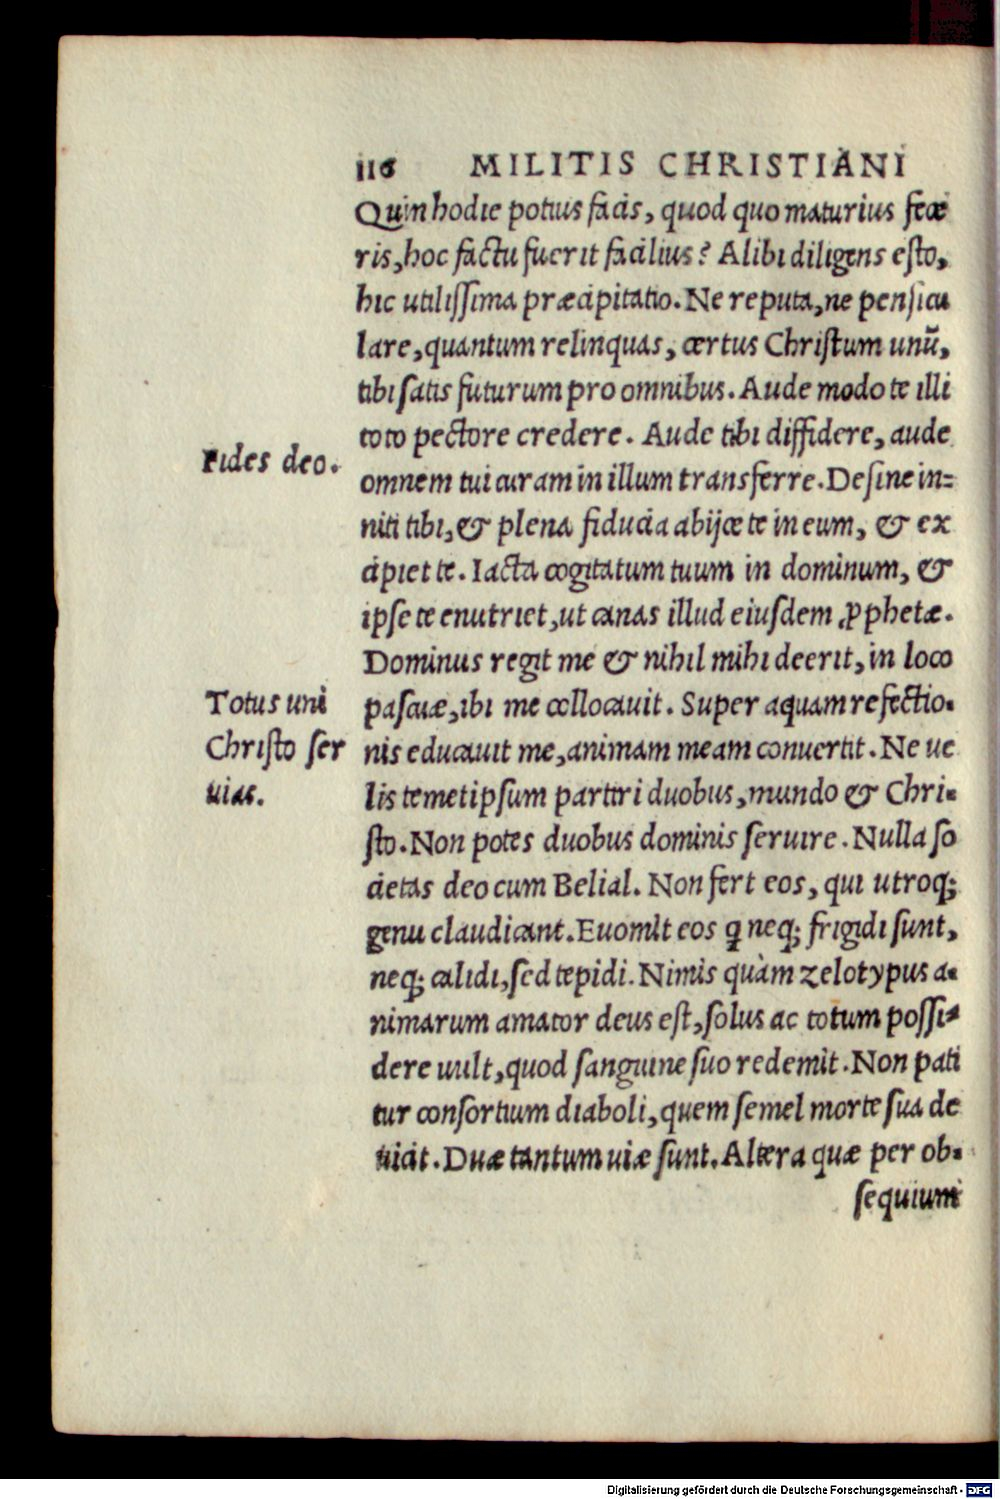 116 MILITIS CHRISTIANI
Quin hodie potius facis, quod quo maturius fece
ris, hoc factu fuerit facilius? Alibi diligens esto,
hic utilissima præcipitatio. Ne reputa, ne pensicu
lare, quantum relinquas, certus Christum unū,
tibi satis futurum pro omnibus. Aude modo te illi
toto pectore credere. Aude tibi diffidere, aude
Fides deo.
omnem tui curam in illum transferre. Desine in=
niti tibi, & plena fiducia abijce te in eum, & ex
cipiet te. Iacta cogitatum tuum in dominum, &
ipse te enutriet, ut canas illud eiusdem ꝓphetæ.
Dominus regit me & nihil mihi deerit, in loco
Totus uni
pascuæ, ibi me collocauit. Super aquam refectio-
Christo ser
nis educauit me, animam meam conuertit. Ne ue
uias.
lis temetipsum partiri duobus, mundo & Chri-
sto. Non potes duobus dominis seruire. Nulla so
cietas deo cum Belial. Non fert eos, qui utroq;
genu claudicant. Euomit eos ꝗ neq; frigidi sunt,
neq; calidi, sed tepidi. Nimis quàm zelotypus a-
nimarum amator deus est, solus ac totum possi-
dere uult, quod sanguine suo redemit. Non pati
tur consortium diaboli, quem semel morte sua de
uicit. Duæ tantum uiæ sunt. Altera quæ per ob-
sequium
Digitalisierung gefördert durch die Deutsche Forschungsgemeinschaft - DFG